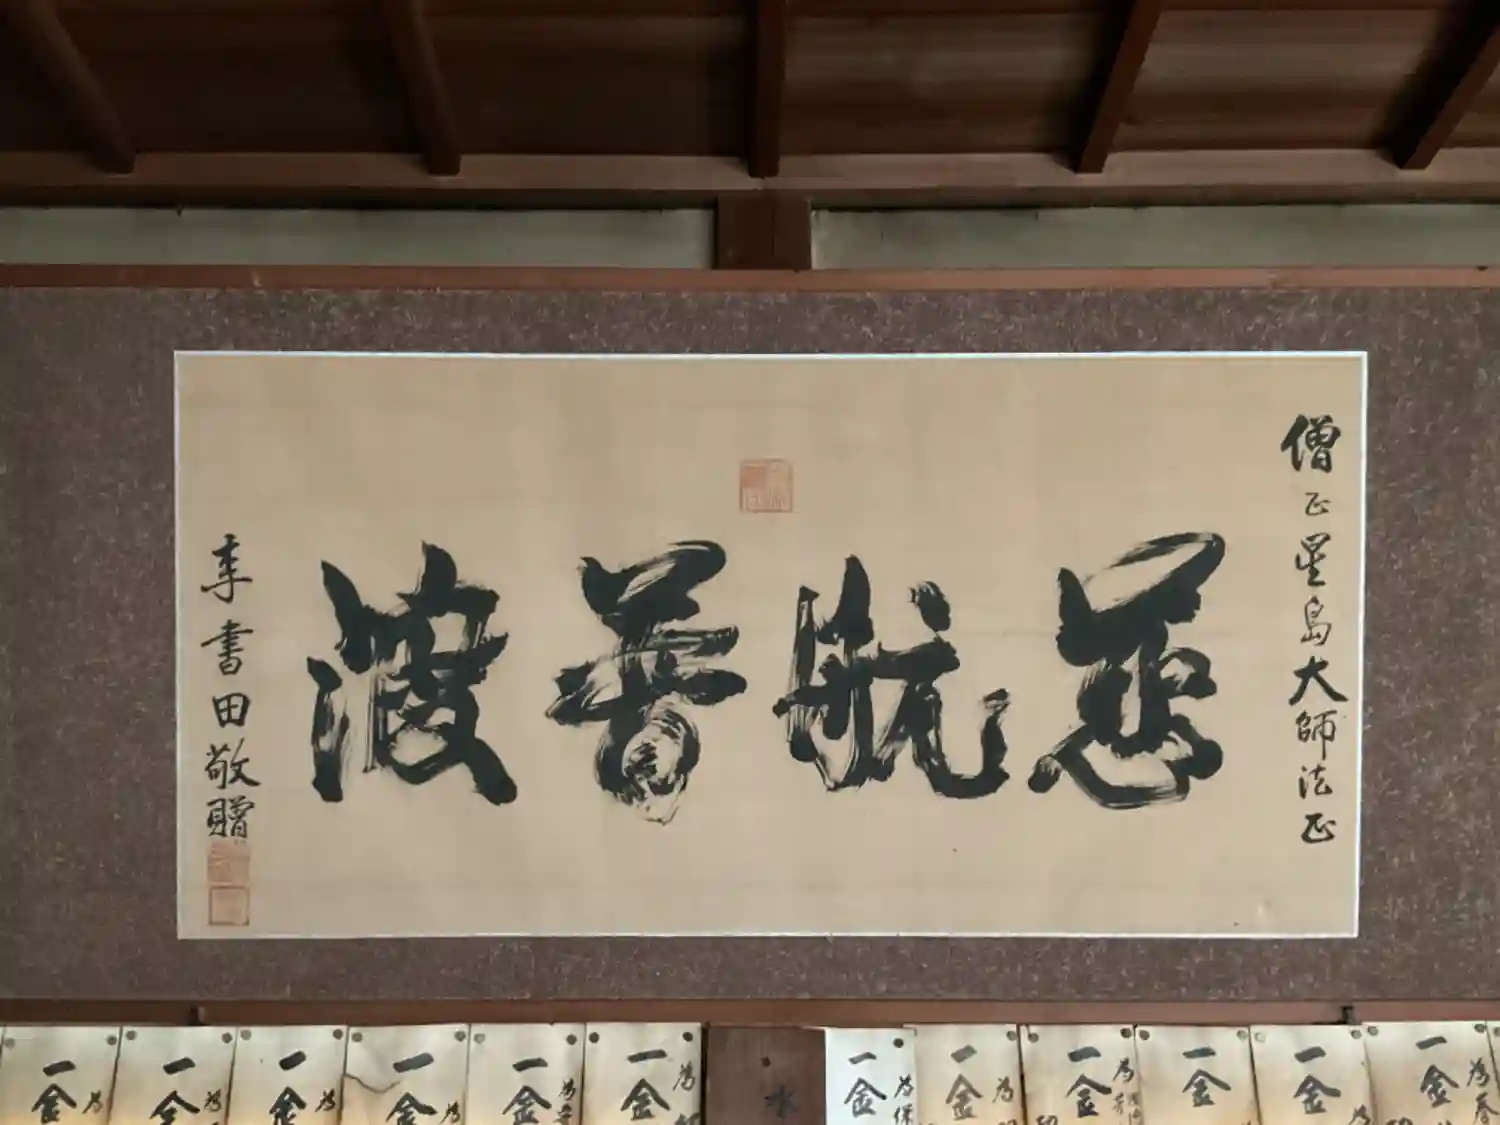 僧正星島大師法正
慈航普渡
李書田敬贈
一金
為
一金
為
一金
為
一金
為
一金
為
一金
為
水
一金
為保
一金
為
一金
為
一金
一金
為
一金
為